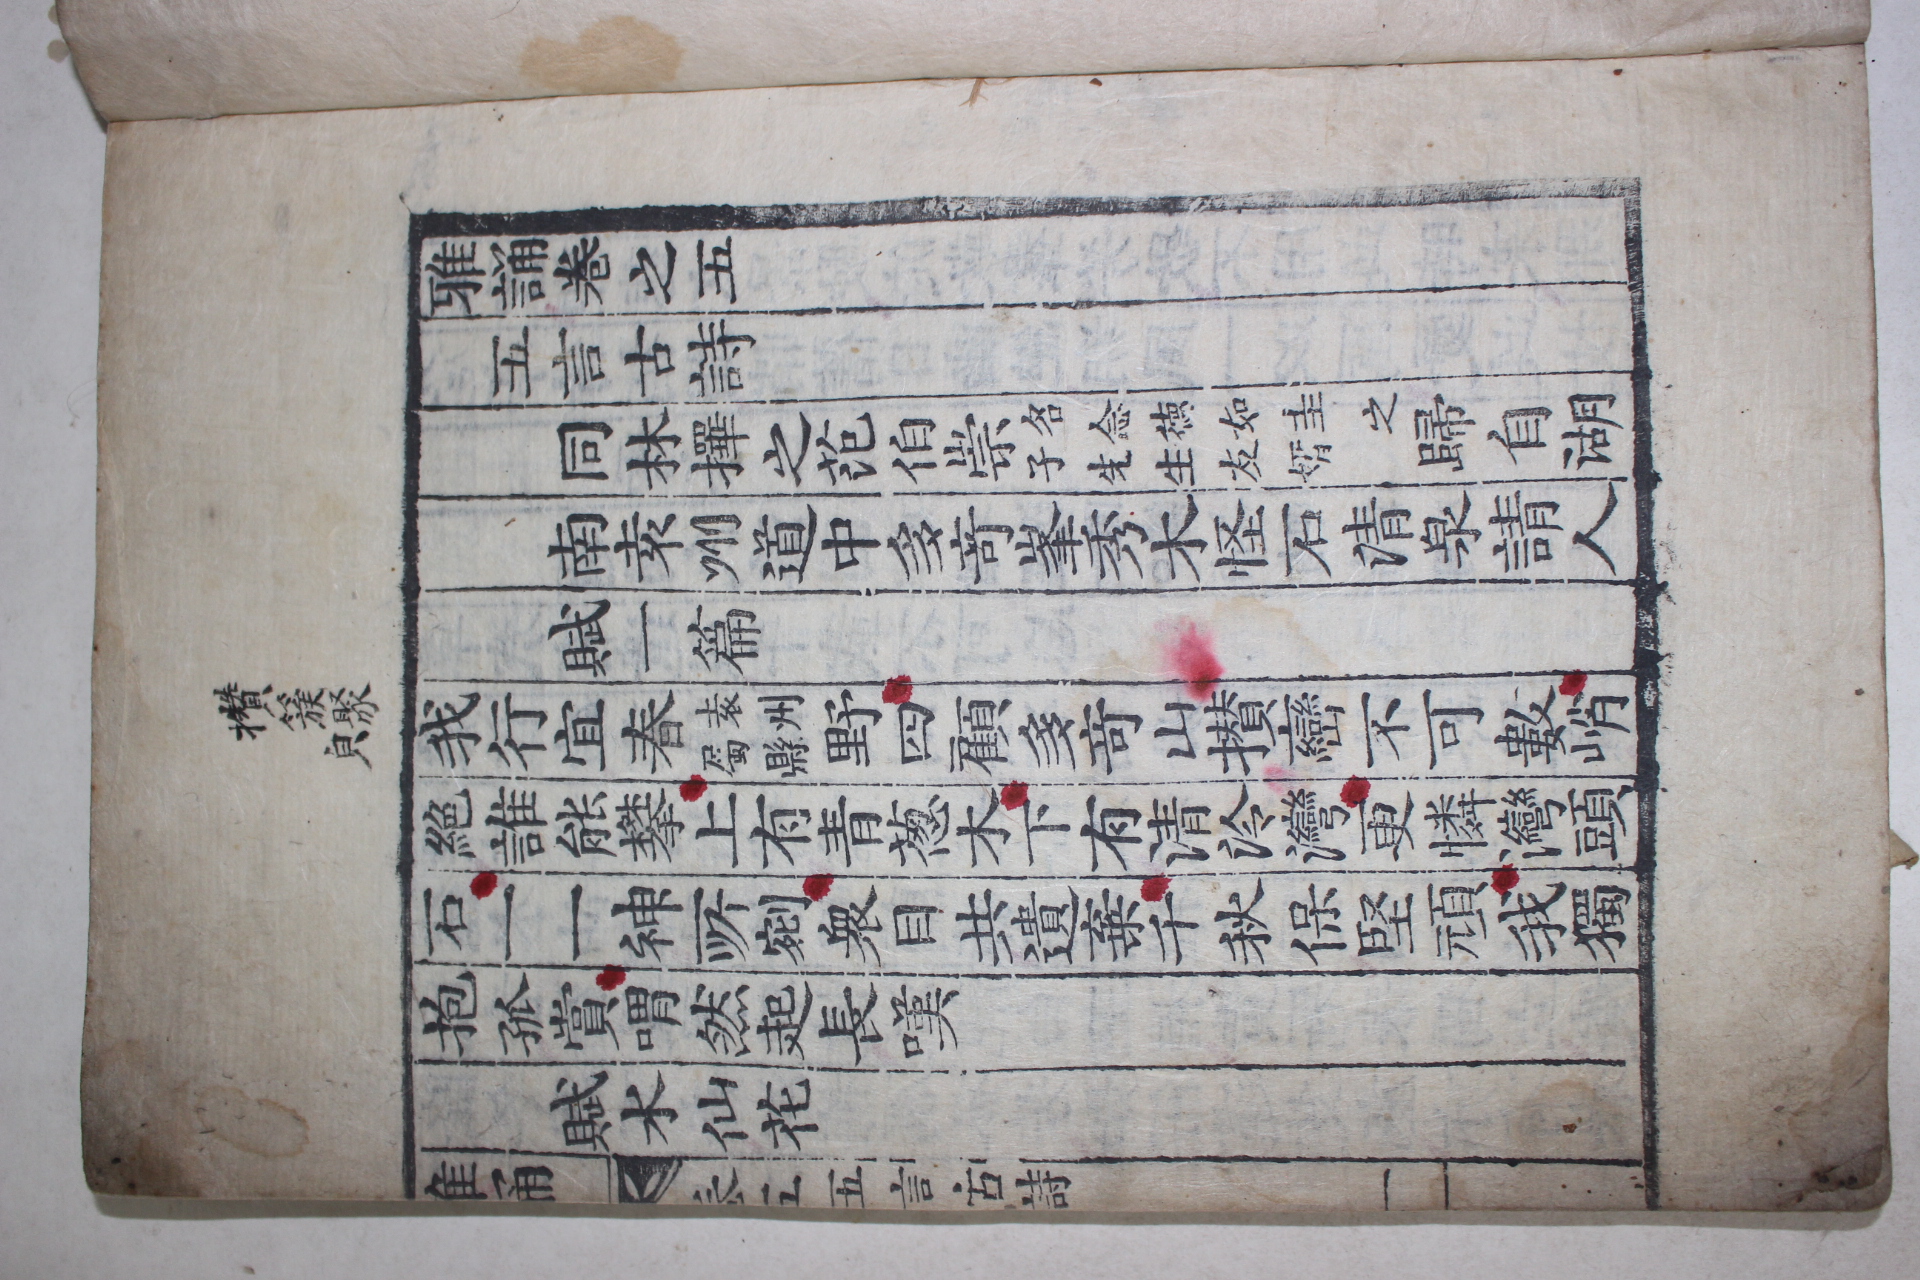 攅簇聚
貞
雅誦卷之五
五言古詩
同林擇之范伯崇名念德如圭之子先生友婿歸自湖
南袁州道中多竒峯秀木怪石清泉請人
賦一篇
我行宜春袁州屬縣野四顧多竒山攅巒不可數峭
絶誰能攀上有青葱木下有清泠灣更憐灣頭
石一一神所剜衆目共遺棄千秋保堅頑我獨
抱孤賞喟然起長嘆
賦水仙花
雅誦
卷五
五言古詩
一